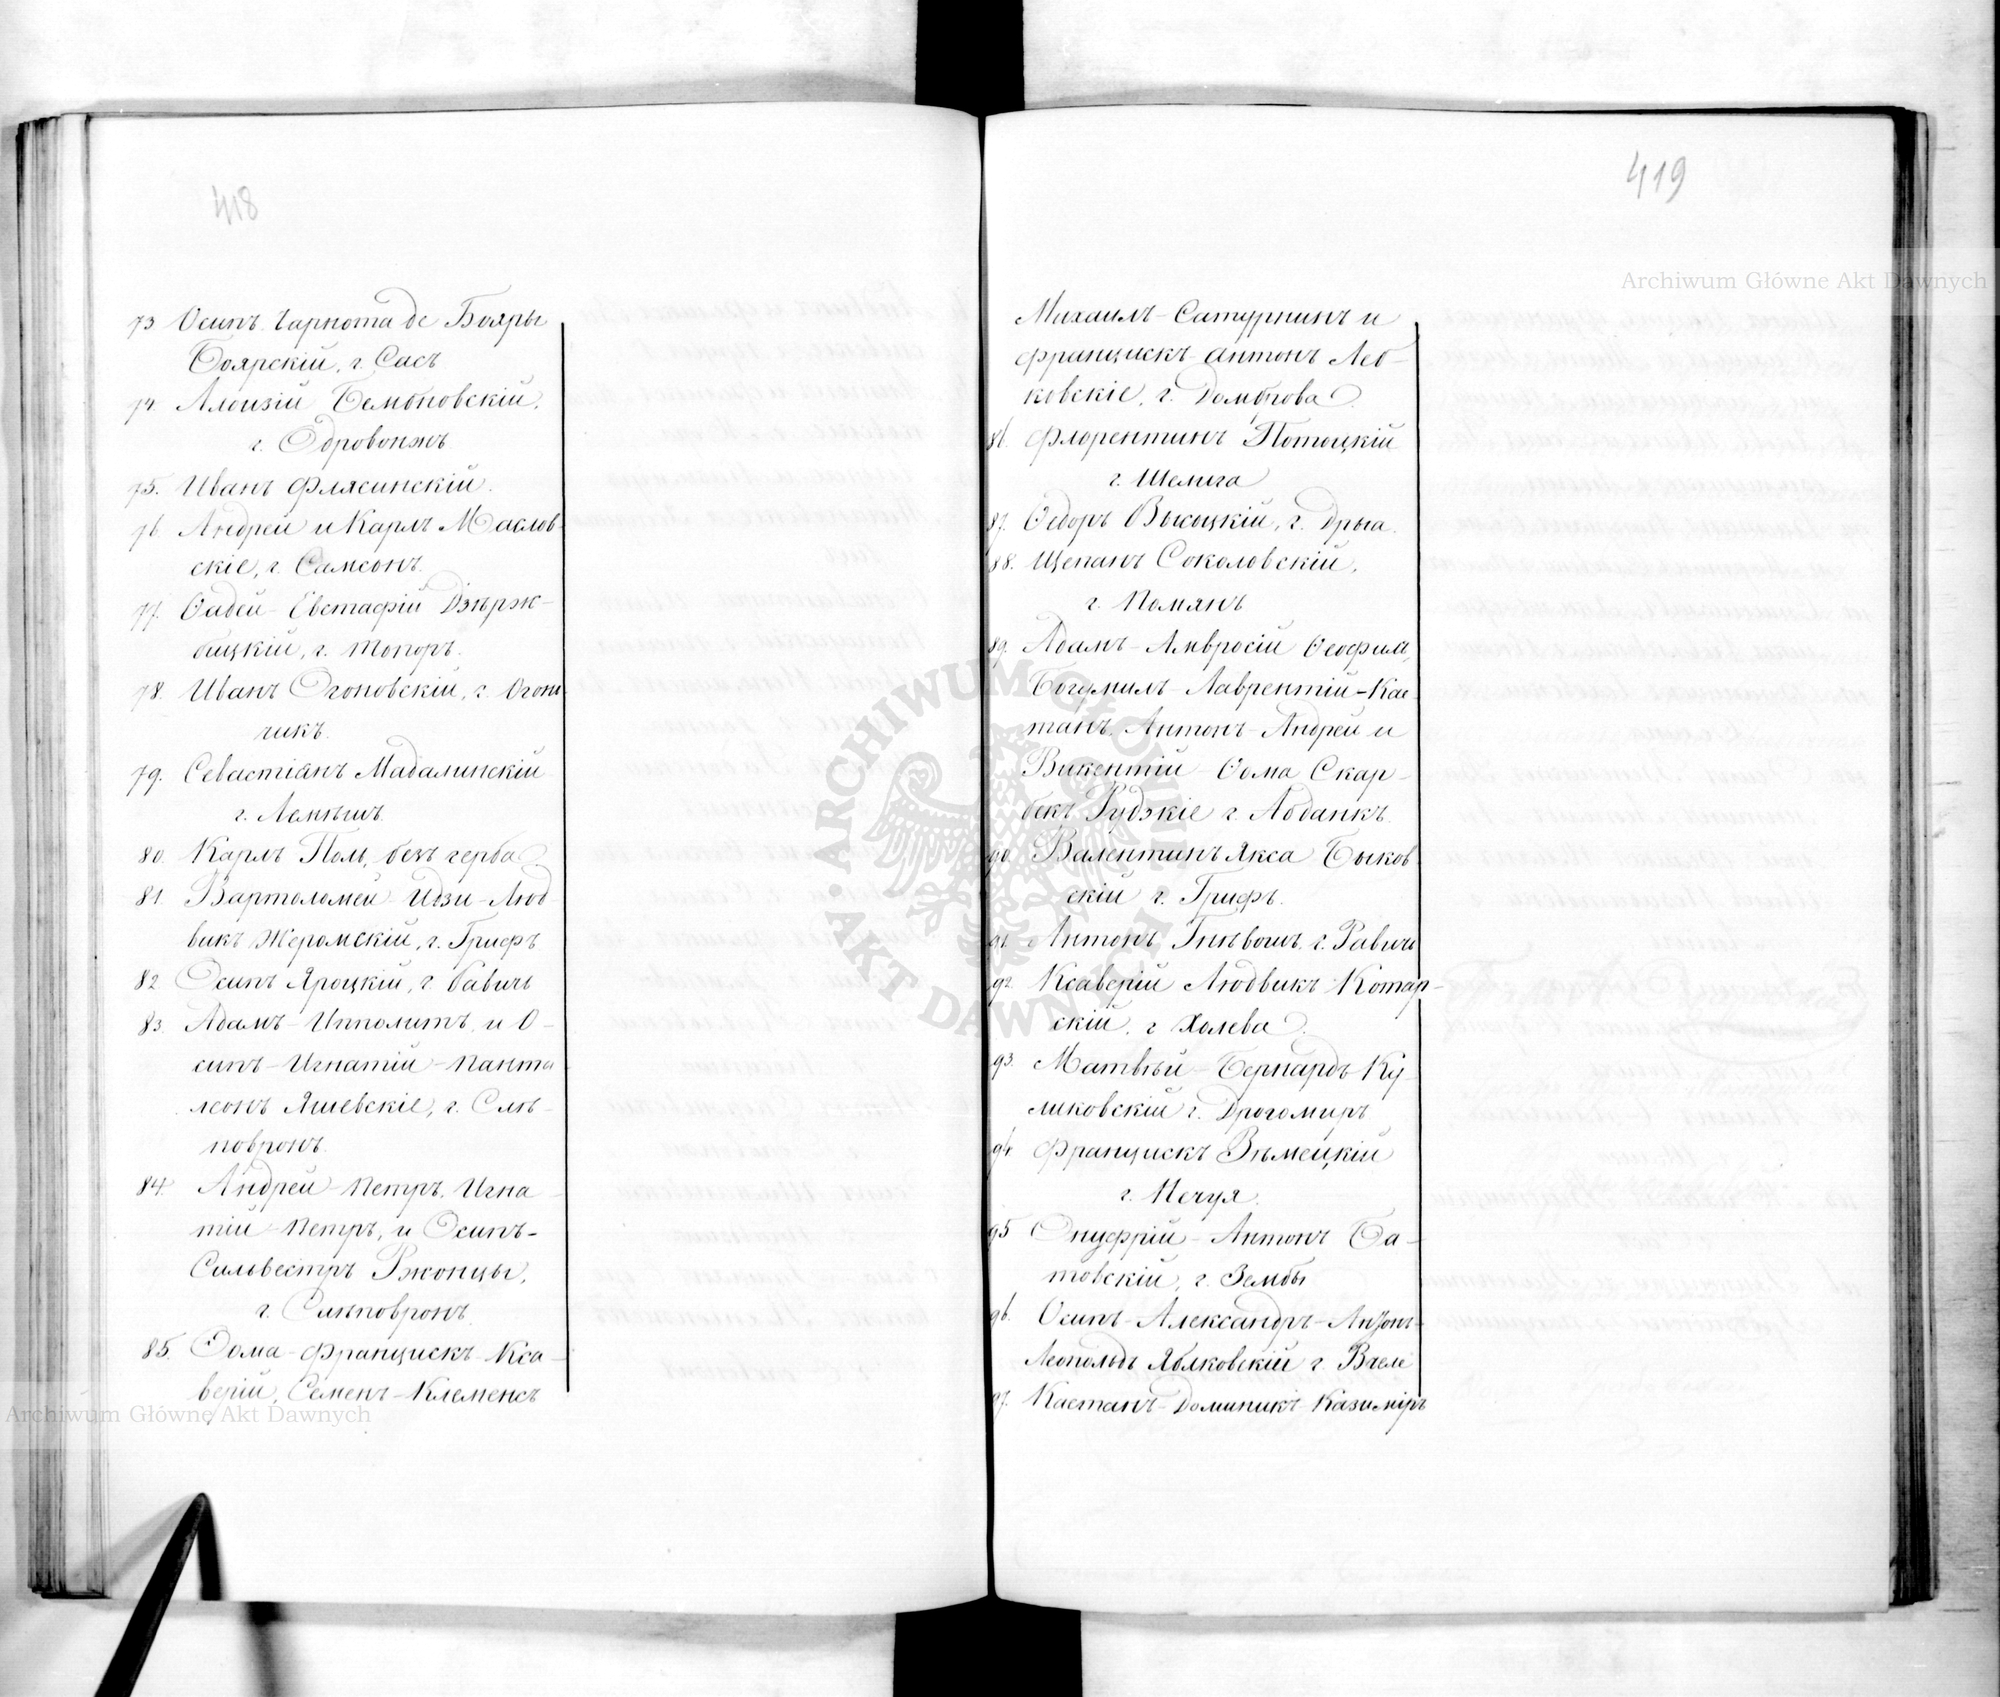 418
73 Осипъ Чарнота de Бояры
Боярскій, г. Сасъ
74. Алоизій Бембновскій,
г. Одровонжъ
75. Иванъ Флясинскій.
76. Андрей и Карлъ Маслов-
скіе, г. Самсонъ.
77. Ѳадей-Евстафій Дзѣрж-
бицкій, г. Топоръ.
78. Иванъ Огоновскій, г. Огон-
чикъ.
79. Севастіянъ Мадалинскій
г. Лемѣшъ.
80. Карлъ Поль, безъ герба
81. Вартоломей-Идзи-Люд-
викъ Жеромскій, г. Грифъ
82 Осипъ Яроцкій, г. Равичъ
83. Адамъ-Ипполитъ, и О-
сипъ-Игнатій-Панта-
леонъ Яшевскіе, г. Слѣ-
повронъ.
84. Андрей-Петръ, Игна-
тій-Петръ, и Осипъ-
Сильвестръ Ржонцы,
г. Слѣповронъ.
85. Ѳома-Францискъ-Кса-
верій, Семенъ-Клеменсъ
Archiwum Główne Akt Dawnych
419
Archiwum Główne Akt Dawnych
Михаилъ-Сатурнинъ и
Францискъ-Антонъ Леб-
ковскіе, г. Домброва.
86. Флорентинъ Потоцкій
г. Шелига
87. Ѳедоръ Высоцкій, г. Дрыа.
88. Щепанъ Соколовскій,
г. Помянъ
89. Адамъ-Амвросій Ѳеофилъ,
Богумилъ-Лаврентій-Кае-
танъ, Антонъ-Андрей и
Викентій-Ѳома Скар-
бекъ Рудзкіе г. Абданкъ.
90. Валентинъ Якса Быков-
скій г. Грифъ.
91. Антонъ Гнѣвошъ, г. Равичъ
92. Ксаверій Людвикъ Котар-
скій, г. Холева.
93. Матвѣй-Бернардъ Ку-
ликовскій г. Дрогомиръ
94. Францискъ Зѣмецкій
г. Нечуя.
95 Онуфрій-Антонъ Ба-
товскій, г. Зембы
96. Осипъ-Александръ-Антонъ-
Леопольдъ Яблковскій г. Вчеле
97. Каетанъ-Доминикъ-Казиміръ
ARCHIWUM GŁÓWNE AKT DAWNYCH